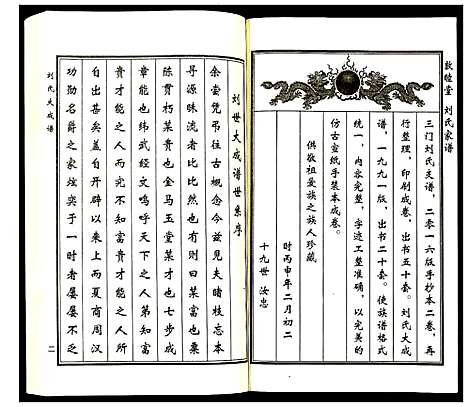 敦睦堂 刘氏家谱
三门刘氏支谱，二零一六版手抄本二卷，再
行整理，印刷成卷，出书二十套。刘氏大成
谱，一九九一版，出书二十套。使族谱格式
统一，内容完整，字迹工整准确，以完美的
仿古宣纸手装本成卷。
供敬祖爱族之族人珍藏
时丙申年二月初二
十九世 汝忠
刘世大成谱世系序
余尝凭吊往古概念今兹见夫睹枝忘本
寻源昧流者比比然也有则曰某富也
陈贯朽某贵也金马玉堂某才也七步成
章某能也纬武经文鸣呼天下之人第知富
贵才能之人而究不知富贵才能之人所
自出甚矣盖自开辟以来上而夏商周汉
功勋名爵之家炫奕于一时者屡屡不乏
刘氏大成谱
二